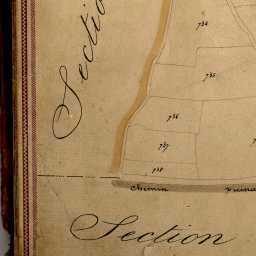 Section
734
735
736
737
738
Chemin
Section